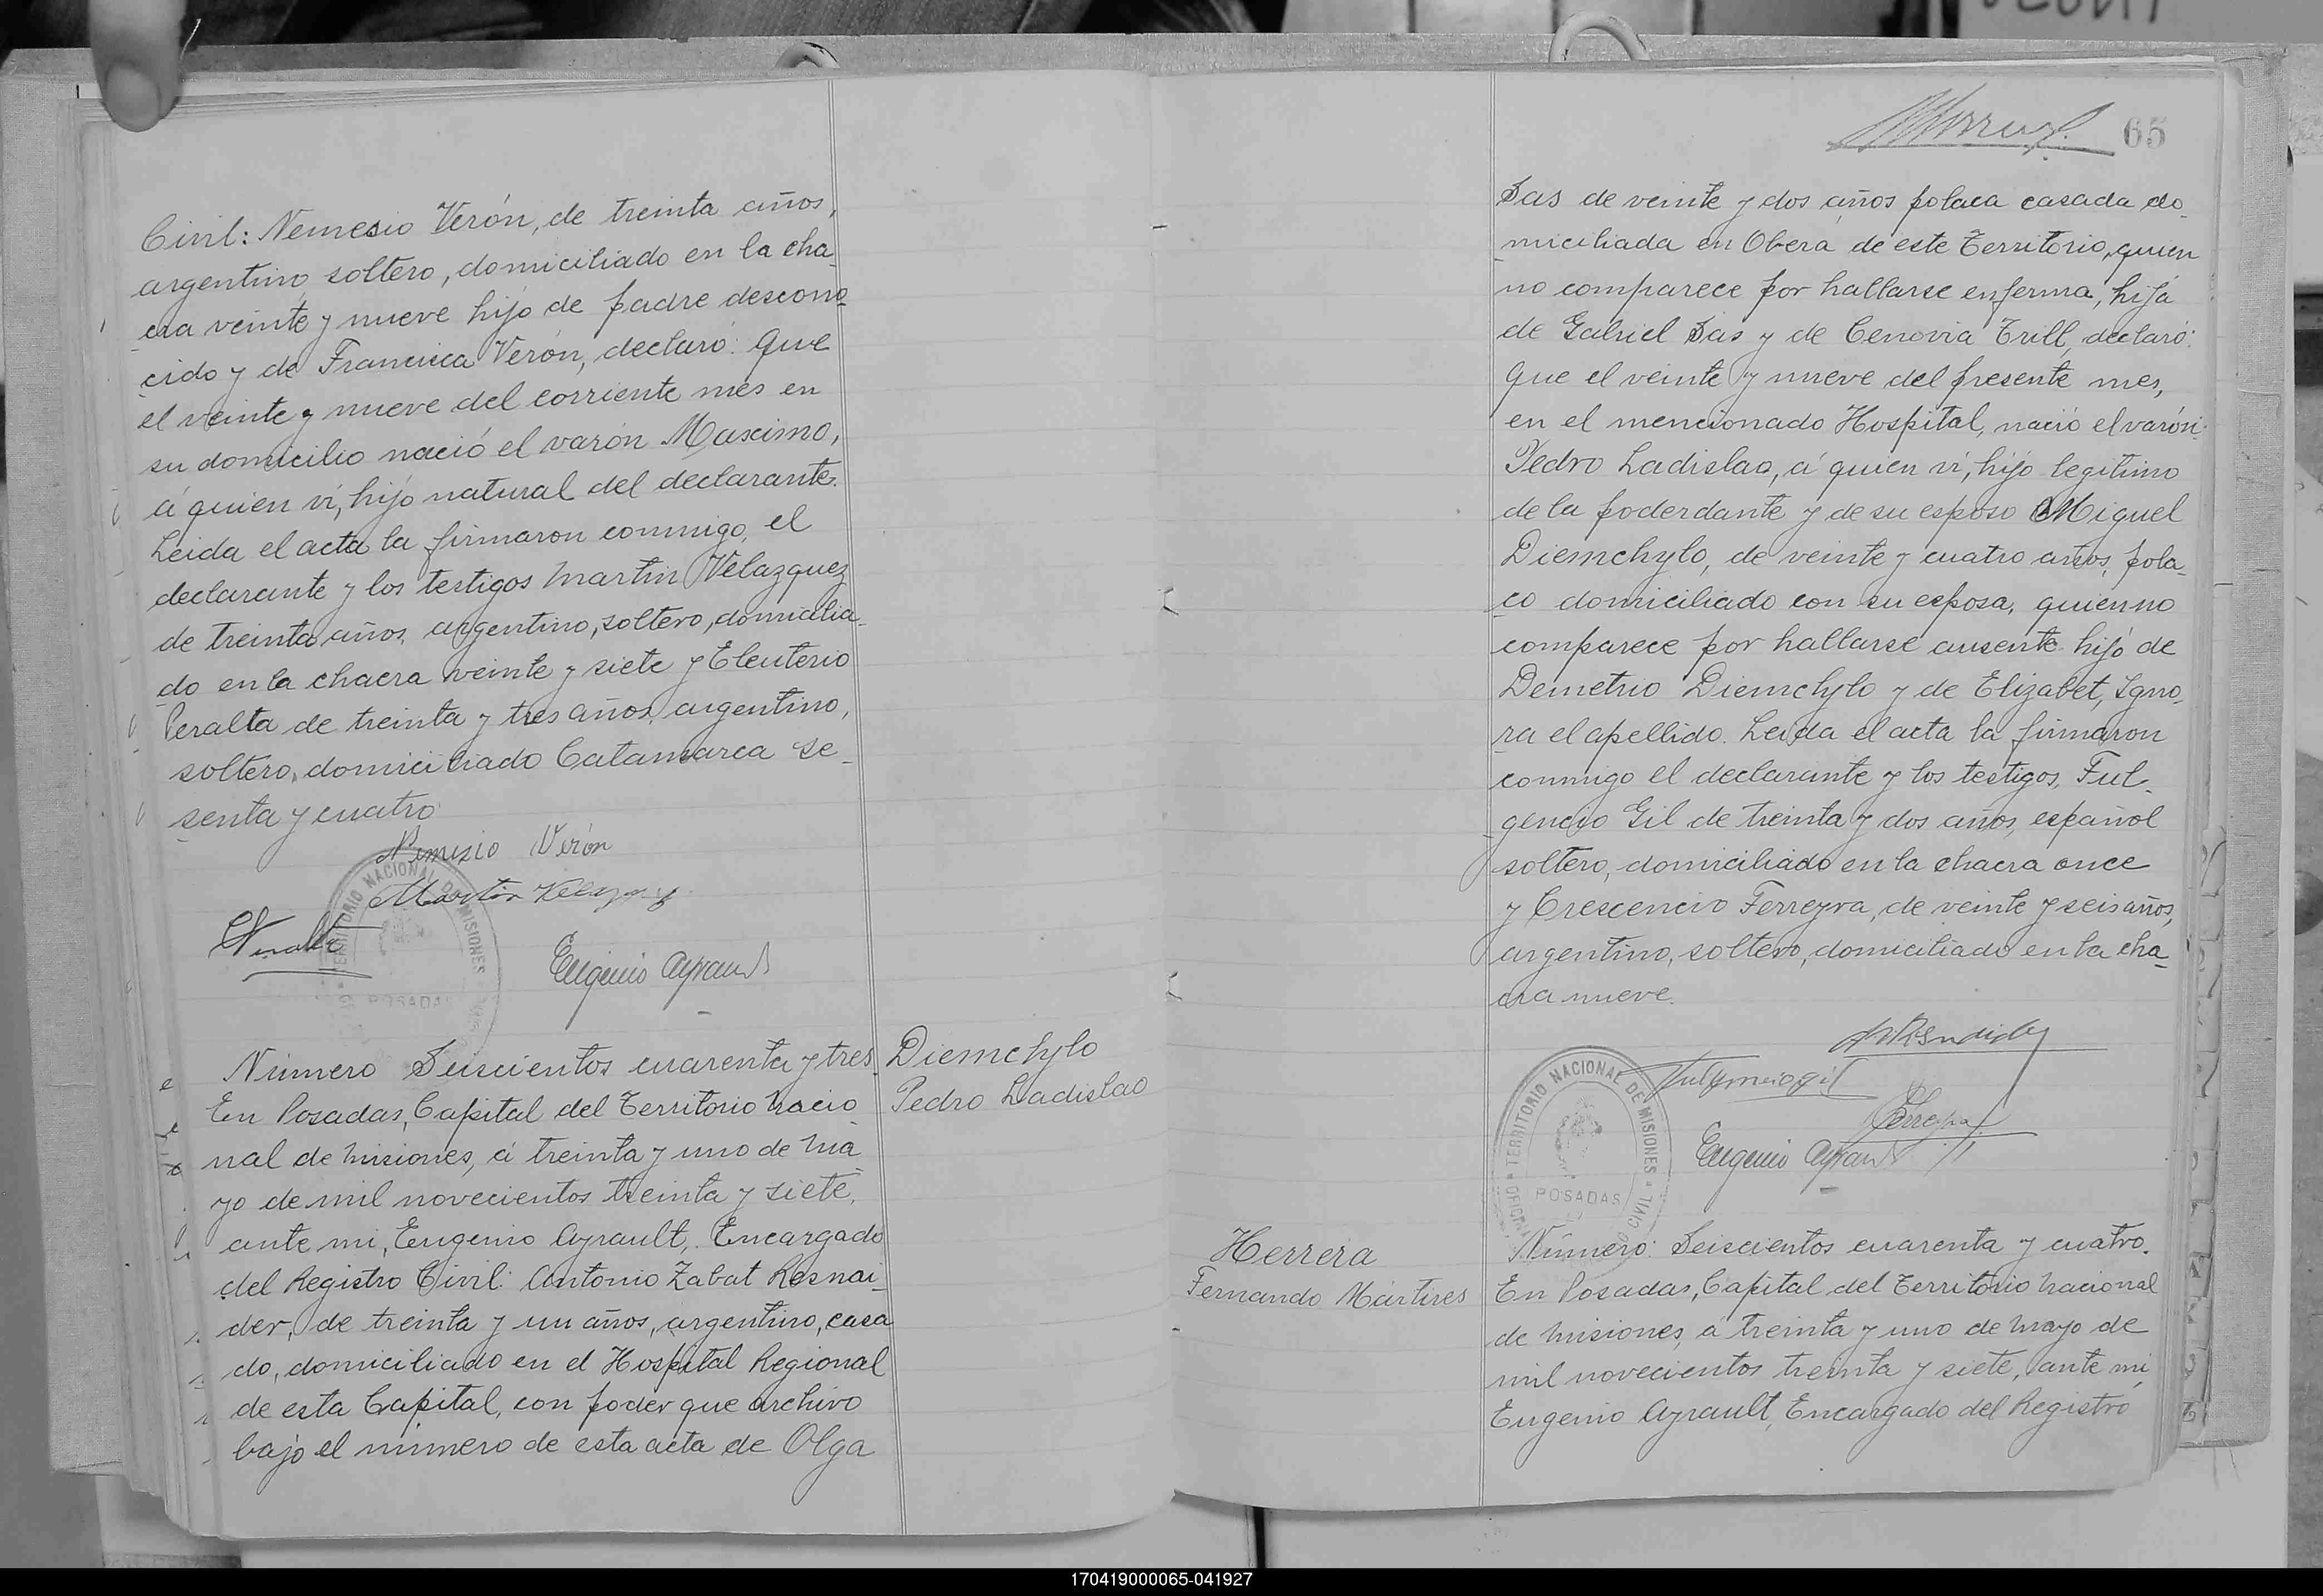 Civil: Nemesio Verón, de treinta años,
argentino soltero, domiciliado en la cha
cra veinte y nueve hijo de padre descono
cido y de Francisca Verón, declaró: Que
el veinte y nueve del corriente mes en
su domicilio nació el varón Mascimo,
á quien ví, hijo natural del declarante.
Leida el acta la firmaron conmigo, el
declarante y los testigos Martin Velazquez
de treinta años, argentino, soltero, domicilia
do en la chacra veinte y siete y Eleuterio
Peralta de treinta y tres años, argentino,
soltero, domiciliado Catamarca se
senta y cuatro
Nemesio Verón
Martin Velazquez
TERRITORIO NACIONAL DE MISIONES
POSADAS
Eugenio Ayrault
Número Seiscientos cuarenta y tres
Diemchylo
Pedro Ladislao
En Posadas, Capital del Territorio Nacio
nal de Misiones, á treinta y uno de Ma
yo de mil novecientos treinta y siete,
ante mi, Eugenio Ayrault, Encargado
del Registro Civil: Antonio Zabat Resnai
der, de treinta y un años, argentino, casa
do, domiciliado en el Hospital Regional
de esta Capital, con poder que archivo
bajo el número de esta acta de Olga
65
Sas de veinte y dos años polaca casada do
miciliada en Oberá de este Territorio, quien
no comparece por hallarse enferma, hija
de Gabriel Sas y de Cenovia Trill, declaró:
Que el veinte y nueve del presente mes,
en el mencionado Hospital, nació el varón
Pedro Ladislao, á quien ví, hijo legitimo
de la poderdante y de su esposo Miguel
Diemchylo, de veinte y cuatro años, pola
co domiciliado con su esposa, quien no
comparece por hallarse ausente hijo de
Demetrio Diemchylo y de Elizabet, Igno
ra el apellido. Leida el acta la firmaron
conmigo el declarante y los testigos, Ful
gencio Gil de treinta y dos años, español
soltero, domiciliado en la chacra once
y Crescencio Ferreyra, de veinte y seis años,
argentino, soltero, domiciliado en la cha
cra nueve.
Fulgencio Gil
Ferreyra
Eugenio Ayrault
TERRITORIO NACIONAL DE MISIONES
POSADAS
Herrera
Fernando Mártires
Número: Seiscientos cuarenta y cuatro.
En Posadas, Capital del Territorio Nacional
de Misiones, á treinta y uno de Mayo de
mil novecientos treinta y siete, ante mi
Eugenio Ayrault, Encargado del Registro
170419000065-041927